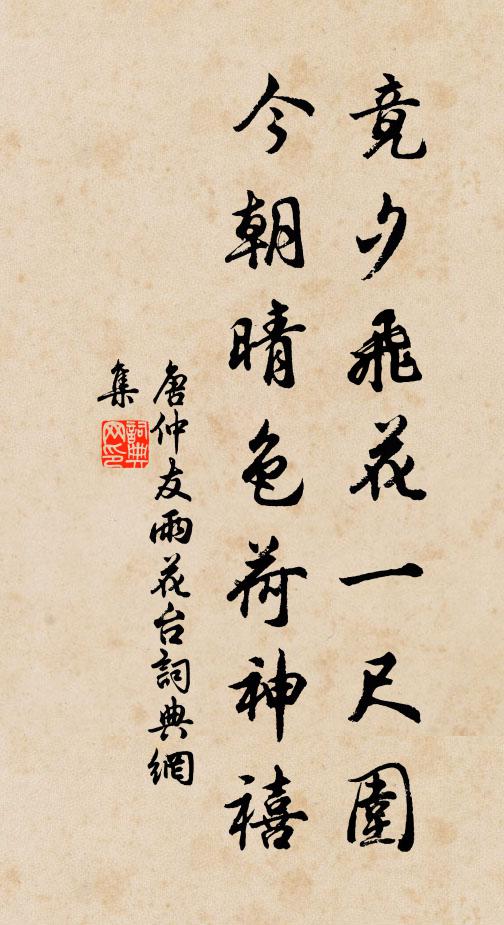 竟夕飛花一尺圍
今朝晴色荷神禧
唐仲友雨花台詞典網
集
詞典
网印